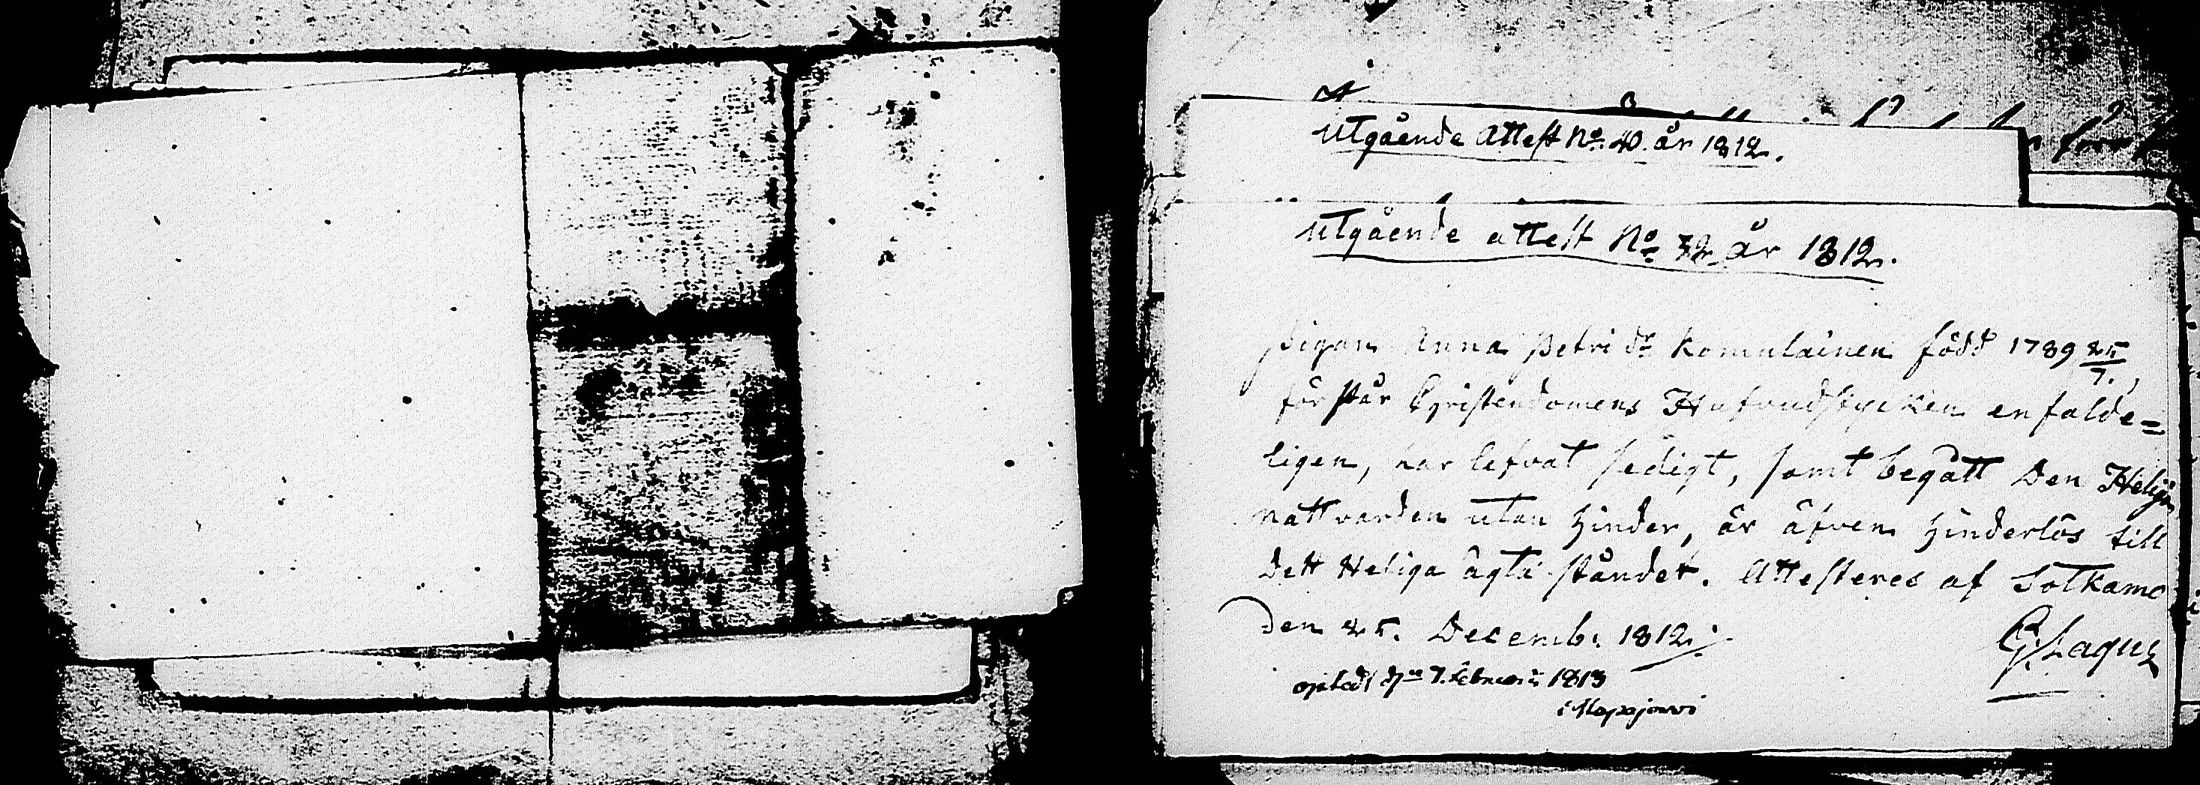 Utgående Attest No. 40. år 1812.
Utgående attest No. 32. år 1812.
Pigan Anna Petri dr Komulainen född 1789 25/7.,
förstår Christendomens Hufvudstycken enfalde=
ligen, har lefvat sedigt, samt begått Den Helga
nattvarden utan hinder, är äfven hinderlös till
Dett Heliga ägta ståndet. Attesteres af Sotkamo
Den 25. Decemb. 1812.
G. Lagus
d. 7. Februarii 1813
i